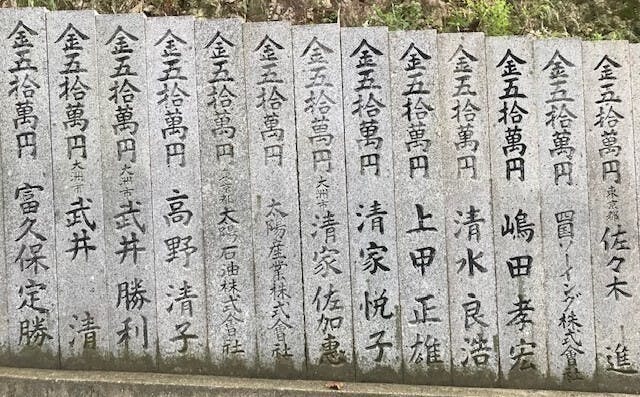 金五拾萬円 東京都 佐々木 進
金五拾萬円 四国ソーイング株式會社
金五拾萬円 嶋田孝宏
金五拾萬円 清水良浩
金五拾萬円 上甲正雄
金五拾萬円 清家悦子
金五拾萬円 大洲市 清家佐加恵
金五拾萬円 太陽産業株式會社
金五拾萬円 太陽石油株式會社
金五拾萬円 高野清子
金五拾萬円 大洲市 武井勝利
金五拾萬円 大洲市 武井 清
金五拾萬円 富久保定勝